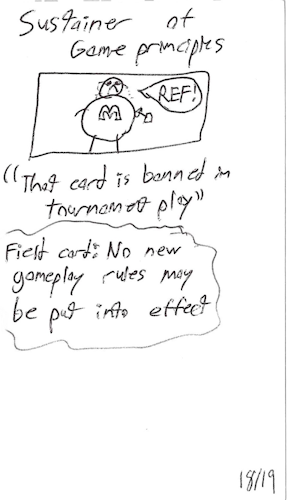 Sustainer of
Game principles
REF!
M
"That card is banned in
tournament play"
Field card: No new
gameplay rules may
be put into effect
18/19